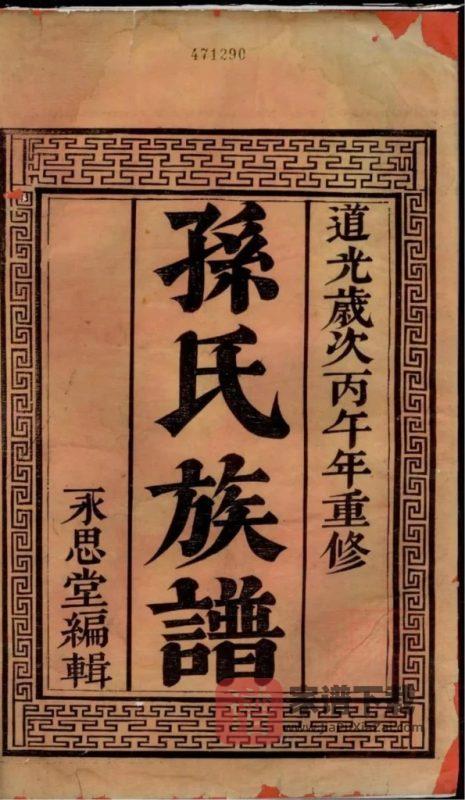 471290
道光歲次丙午年重修
孫氏族譜
永思堂編輯
家谱下载
www.jiapuxiazai.com